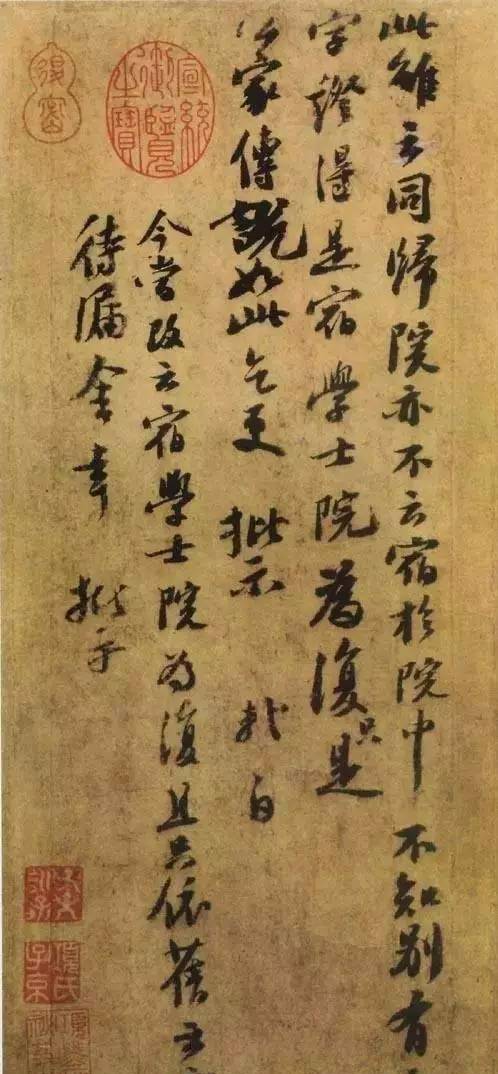 此雖云同歸院亦不云宿於院中不知別有
字證得是宿學士院為復只是
家傳說如此乞更批示 軾白
今當改云宿學士院為復且只依舊云
待漏舍幸批示
宣統御覽之寶
項氏子京